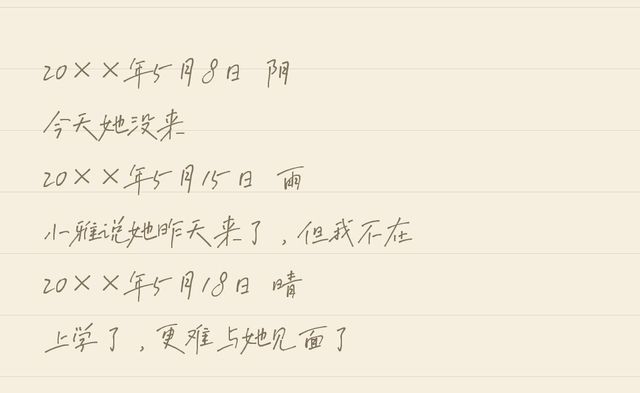 20××年5月8日 阴
今天她没来
20××年5月15日 雨
小雅说她昨天来了,但我不在
20××年5月18日 晴
上学了,更难与她见面了